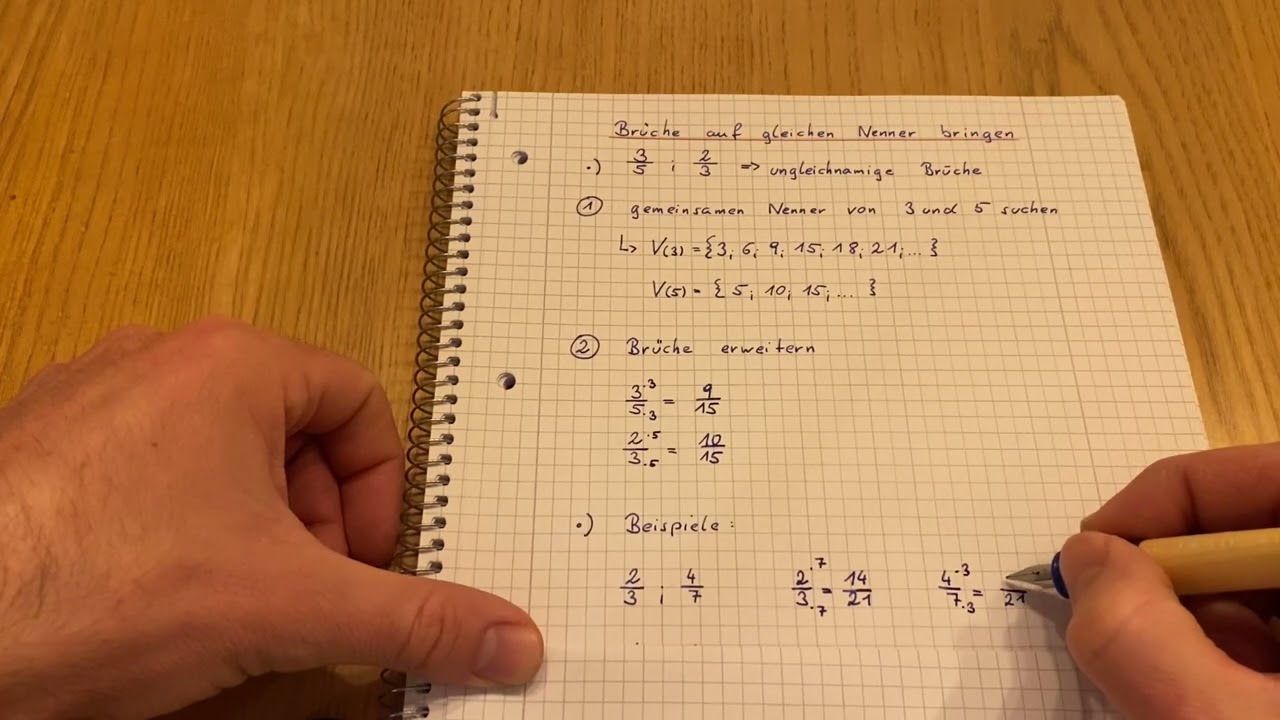 Brüche auf gleichen Nenner bringen
•) 3/5 ; 2/3 => ungleichnamige Brüche
① gemeinsamen Nenner von 3 und 5 suchen
↳ V(3) = {3; 6; 9; 15; 18; 21; ... }
V(5) = { 5; 10; 15; ... }
② Brüche erweitern
3·3/5·3 = 9/15
2·5/3·5 = 10/15
•) Beispiele:
2/3 ; 4/7 2·7/3·7 = 14/21 4·3/7·3 = /21